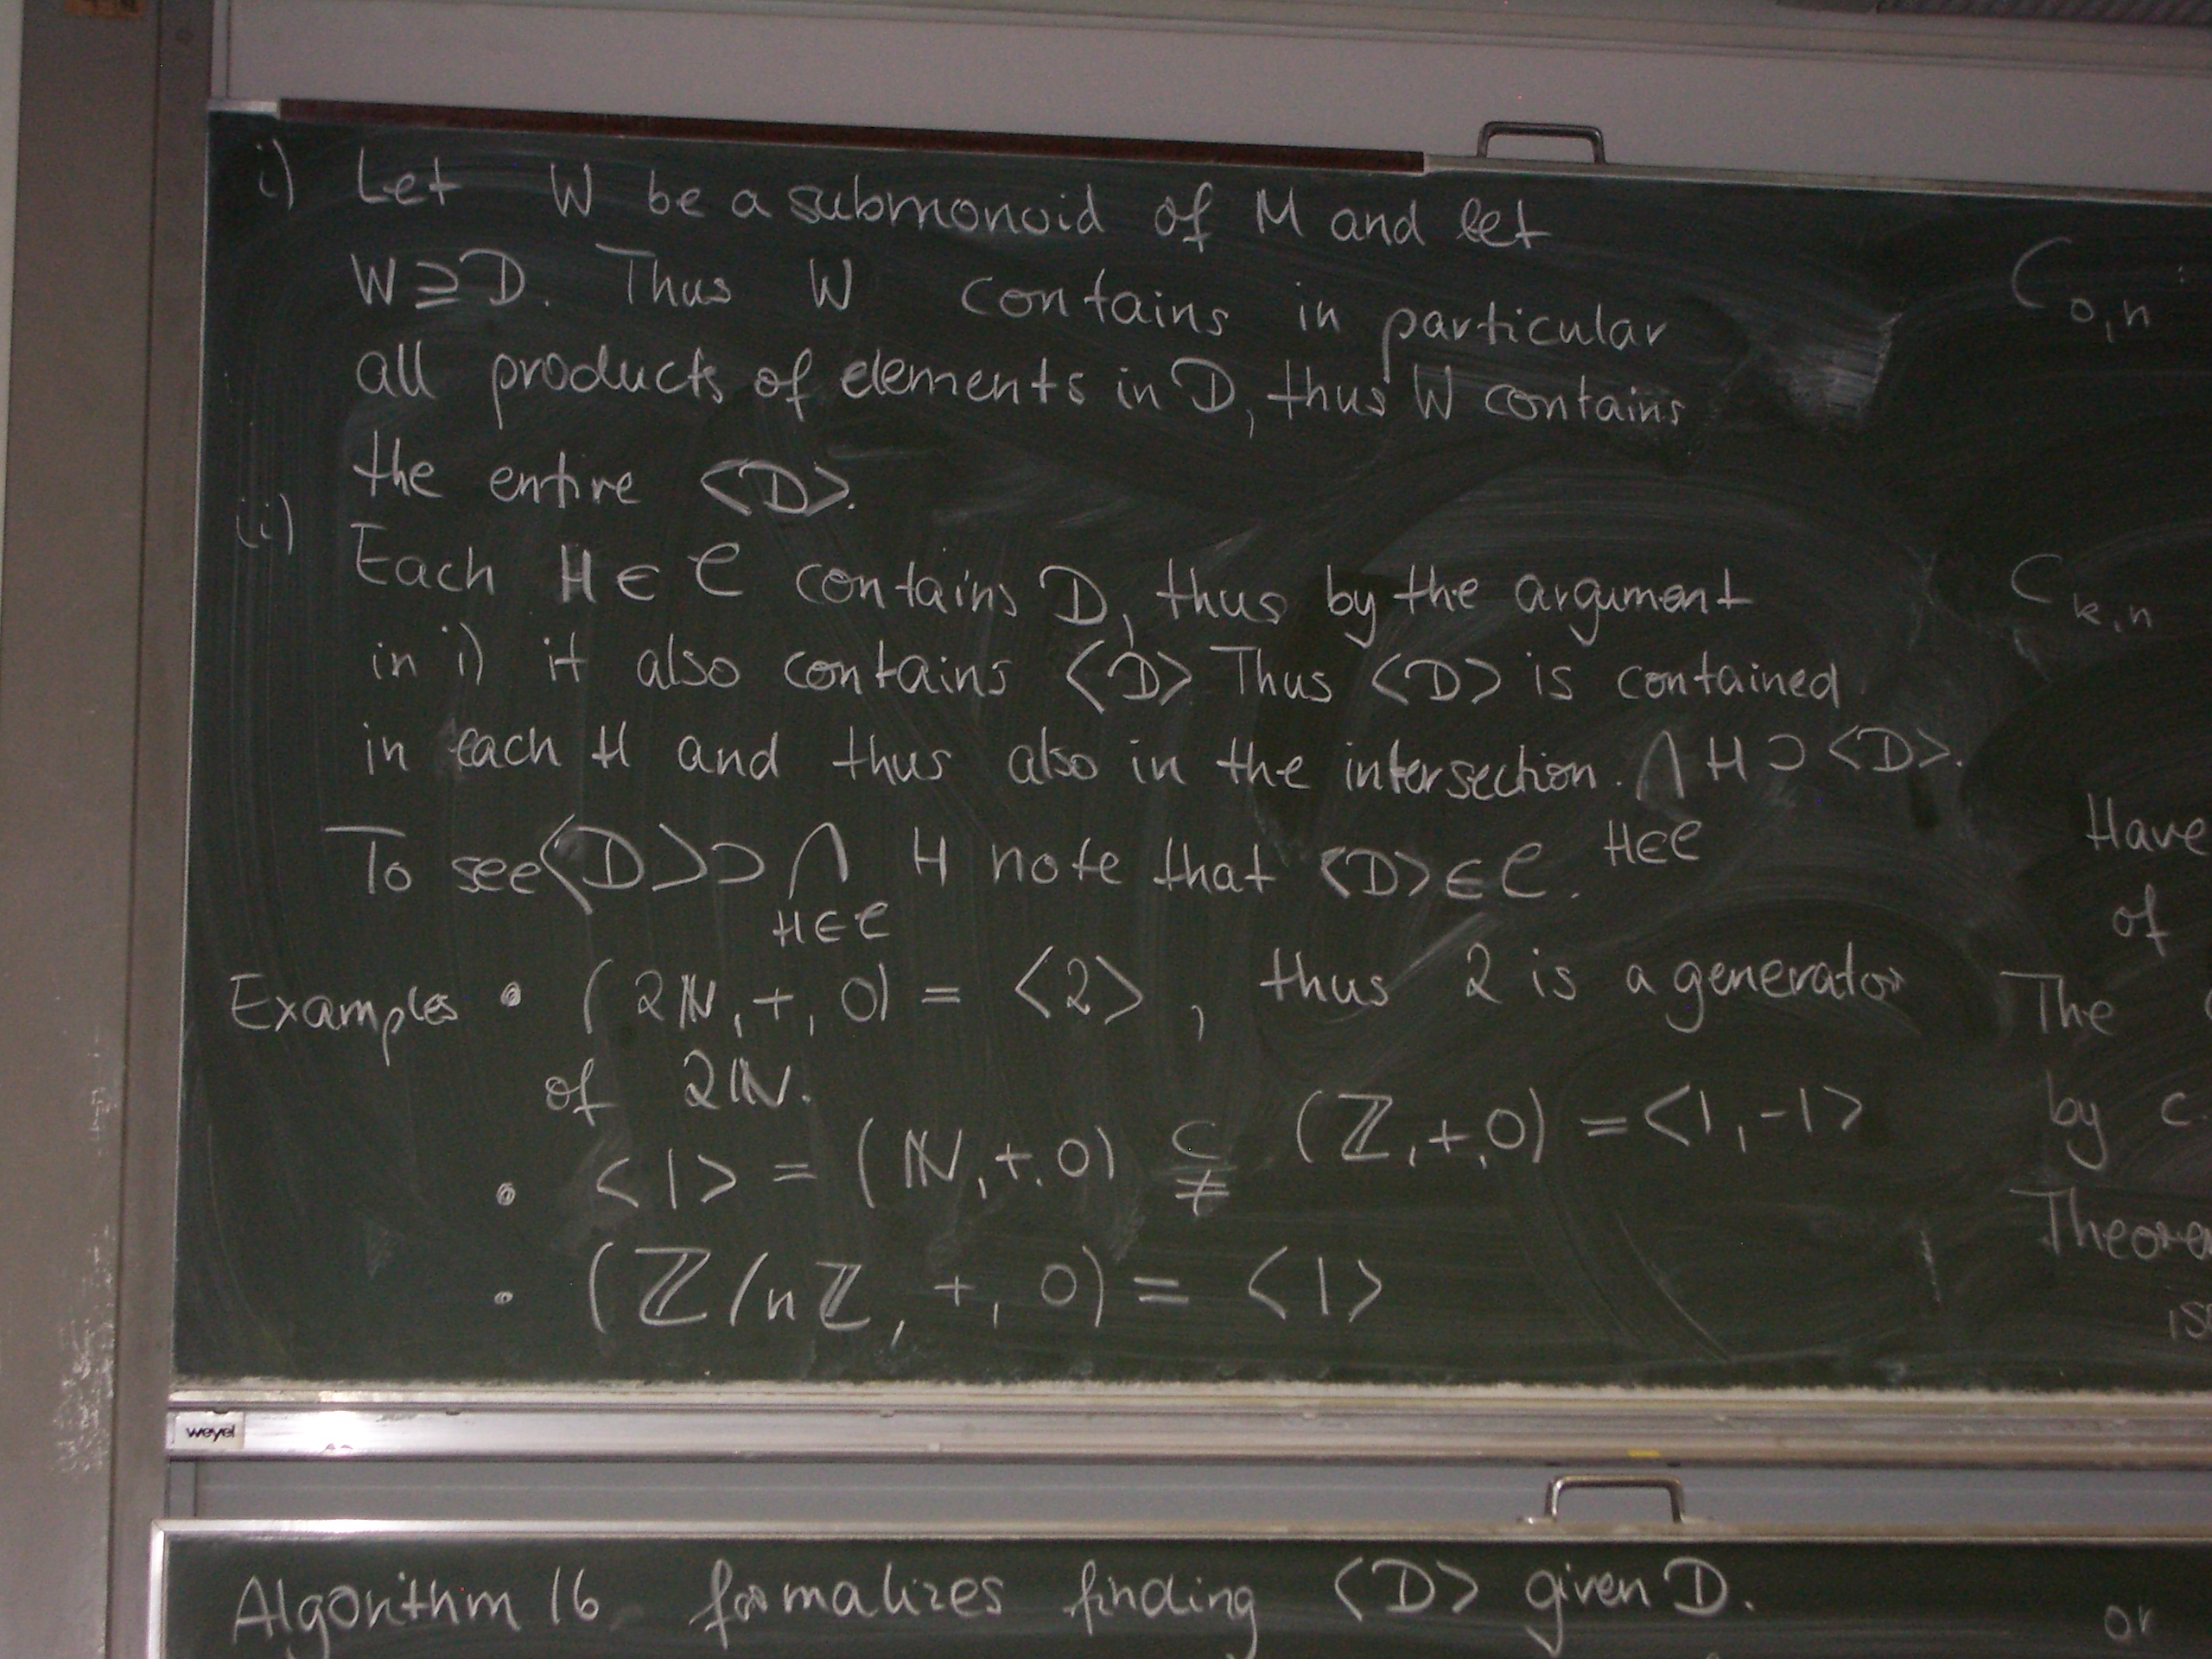 i) Let W be a submonoid of M and let
W⊇D. Thus W contains in particular
all products of elements in D, thus W contains
the entire <D>.
ii) Each H∈C contains D, thus by the argument
in i) it also contains <D> Thus <D> is contained
in each H and thus also in the intersection. ⋂ H ⊃ <D>.
H∈C
To see <D> ⊃ ⋂ H note that <D>∈C.
H∈C
Examples • (2ℕ, +, 0) = <2>, thus 2 is a generator
of 2ℕ.
• <1> = (ℕ, +, 0) ⊊ (ℤ, +, 0) = <1, -1>
• (ℤ/nℤ, +, 0) = <1>
weyel
Algorithm 16 formalizes finding <D> given D.
C₀,ₙ
Cₖ,ₙ
Have
of
The
by c
Theore
is
or